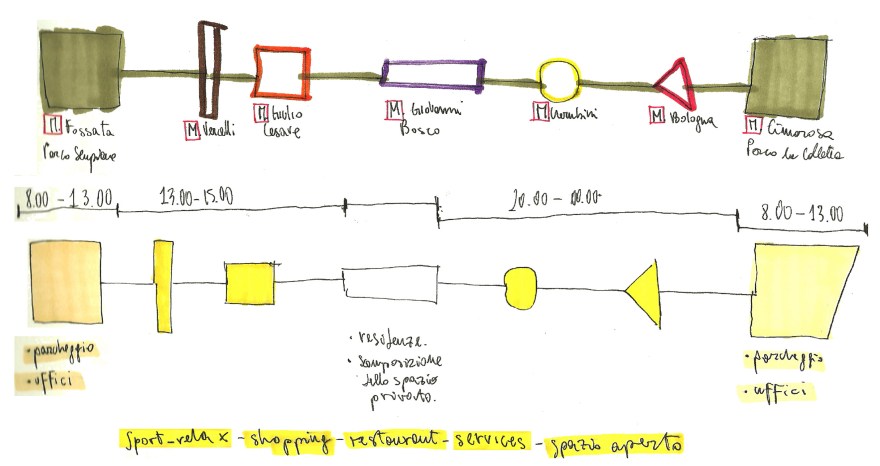 M Fossata
Parco Sempione
M Vercelli
M Giulio
Cesare
M Giovanni
Bosco
M Cherubini
M Bologna
M Cimarosa
Parco la Colletta
8.00 - 13.00
13.00-15.00
20.00 - 00.00
8.00-13.00
• parcheggio
• uffici
• residenze.
• scomposizione
dello spazio
privato.
• parcheggio
• uffici
sport-relax - shopping - restourant - services - spazio aperto